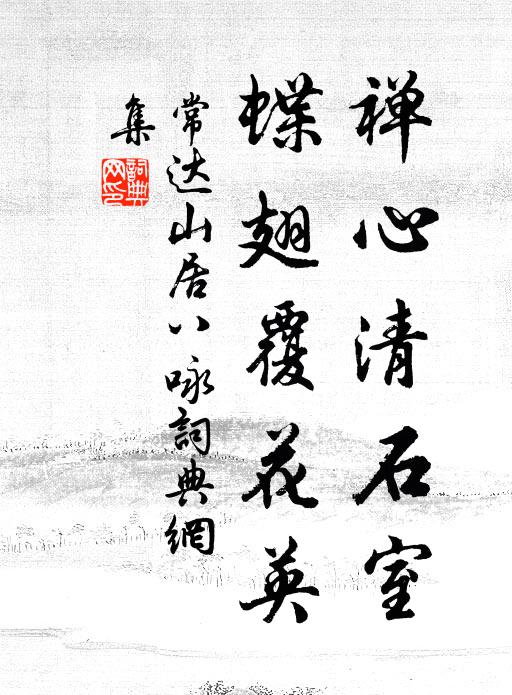 禅心清石室
蝶翅覆花英
常达山居八咏詞典網
集
詞典
网印